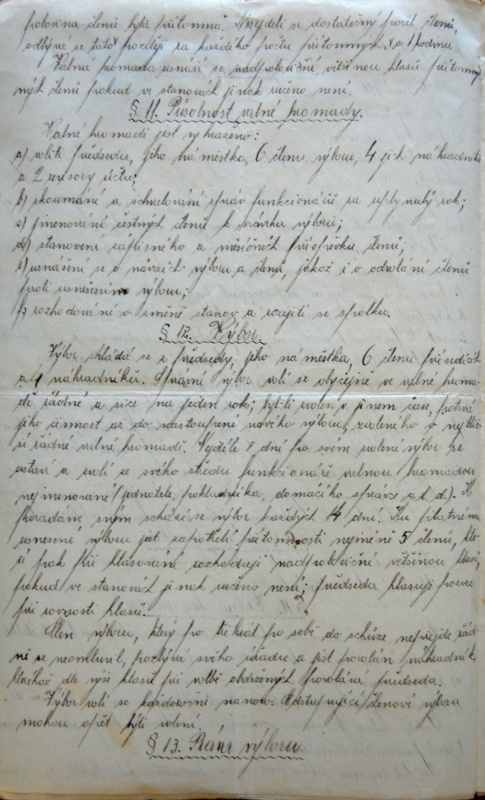 polovina členů byla přítomna. Nesejdeli se dostatečný počet členů,
odbývá se tatáž později za každého počtu přítomných, a 1 hodinu
Valná hromada usnáší se nadpoloviční většinou hlasů přítom-
ných členů pokud ve stanovách jinak určeno není.
§ 11. Působnost valné hromady.
Valné hromadě jest vyhrazeno:
a) voliti předsedu, jeho náměstka, 6 členů výboru, 4 jich náhradníků
a 2 revisory účtů;
b) zkoumání a schvalování zpráv funkcionářů za uplynulý rok;
c) jmenování čestných členů k návrhu výboru;
d) stanovení zápisného a měsíčních příspěvků členů;
e) usnášení se o návrzích výboru a členů, jakož i o odvolání členů
proti usnesením výboru;
f) rozhodování o změně stanov a rozejití se spolku.
§ 12. Výbor.
Výbor skládá se z předsedy, jeho náměstka, 6 členů přísedících
a 4 náhradníků. Správní výbor volí se obyčejně ve valné hroma-
dě řádné a sice na jeden rok; byl-li zvolen v jiném čase, potrvá
jeho činnost až do nastoupení nového výboru, zvoleného v nejbliž-
ší řádné valné hromadě. Nejdéle 8 dní po svém zvolení výbor se
ustaví a volí ze svého středu funkcionáře valnou hromadou
nejmenované (jednatele, pokladníka, domácího správce a.t.d.). K
poradám svým schází se výbor každých 14 dní. Ku platnému
usnesení výboru jest zapotřebí přítomnosti nejméně 5 členů, kte-
ří pak při hlasování rozhodují nadpoloviční většinou hlasů,
pokud ve stanovách jinak určeno není; předseda hlasuje pouze
při rovnosti hlasů.
Člen výboru, který po třikrát po sobě do schůze nepřijde řád-
ně se neomluvil, pozbývá svého úřadu a jest povolán náhradník,
kteréhož dle výše hlasů při volbě obdržených povolává předseda.
Výbor volí se každoročně na novo. Odstupující členové výboru
mohou opět býti voleni.
§ 13. Práva výboru.